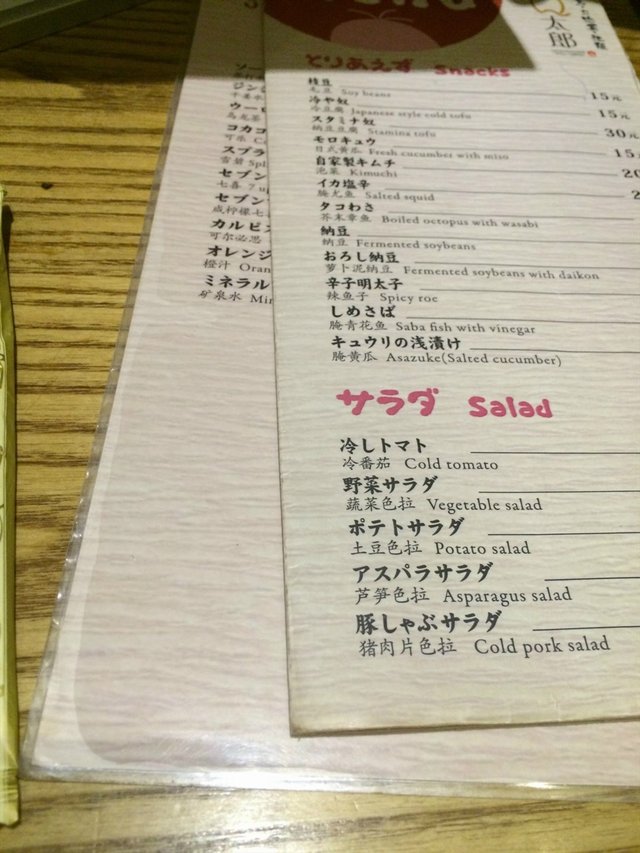 太郎
とりあえず Snacks
枝豆
毛豆 Soy beans 15元
冷や奴
冷豆腐 Japanese style cold tofu 15元
スタミナ奴
纳豆豆腐 Stamina tofu 30元
モロキュウ
日式黄瓜 Fresh cucumber with miso 15
自家製キムチ
泡菜 Kimuchi 20
イカ塩辛
腌尤鱼 Salted squid 2
タコわさ
芥末章鱼 Boiled octopus with wasabi
納豆
纳豆 Fermented soybeans
おろし納豆
萝卜泥纳豆 Fermented soybeans with daikon
辛子明太子
辣鱼子 Spicy roe
しめさば
腌青花鱼 Saba fish with vinegar
キュウリの浅漬け
腌黄瓜 Asazuke(Salted cucumber)
サラダ Salad
冷しトマト
冷番茄 Cold tomato
野菜サラダ
蔬菜色拉 Vegetable salad
ポテトサラダ
土豆色拉 Potato salad
アスパラサラダ
芦笋色拉 Asparagus salad
豚しゃぶサラダ
猪肉片色拉 Cold pork salad
ソー
ジンジ
ウーロ
乌龙茶
コカコ
可乐 C
スプラ
雪碧 Spl
セブン
七喜 7 u
セブン
咸柠檬七
カルピ
可尔必思
オレンジ
橙汁 Oran
ミネラル
矿泉水 Mi